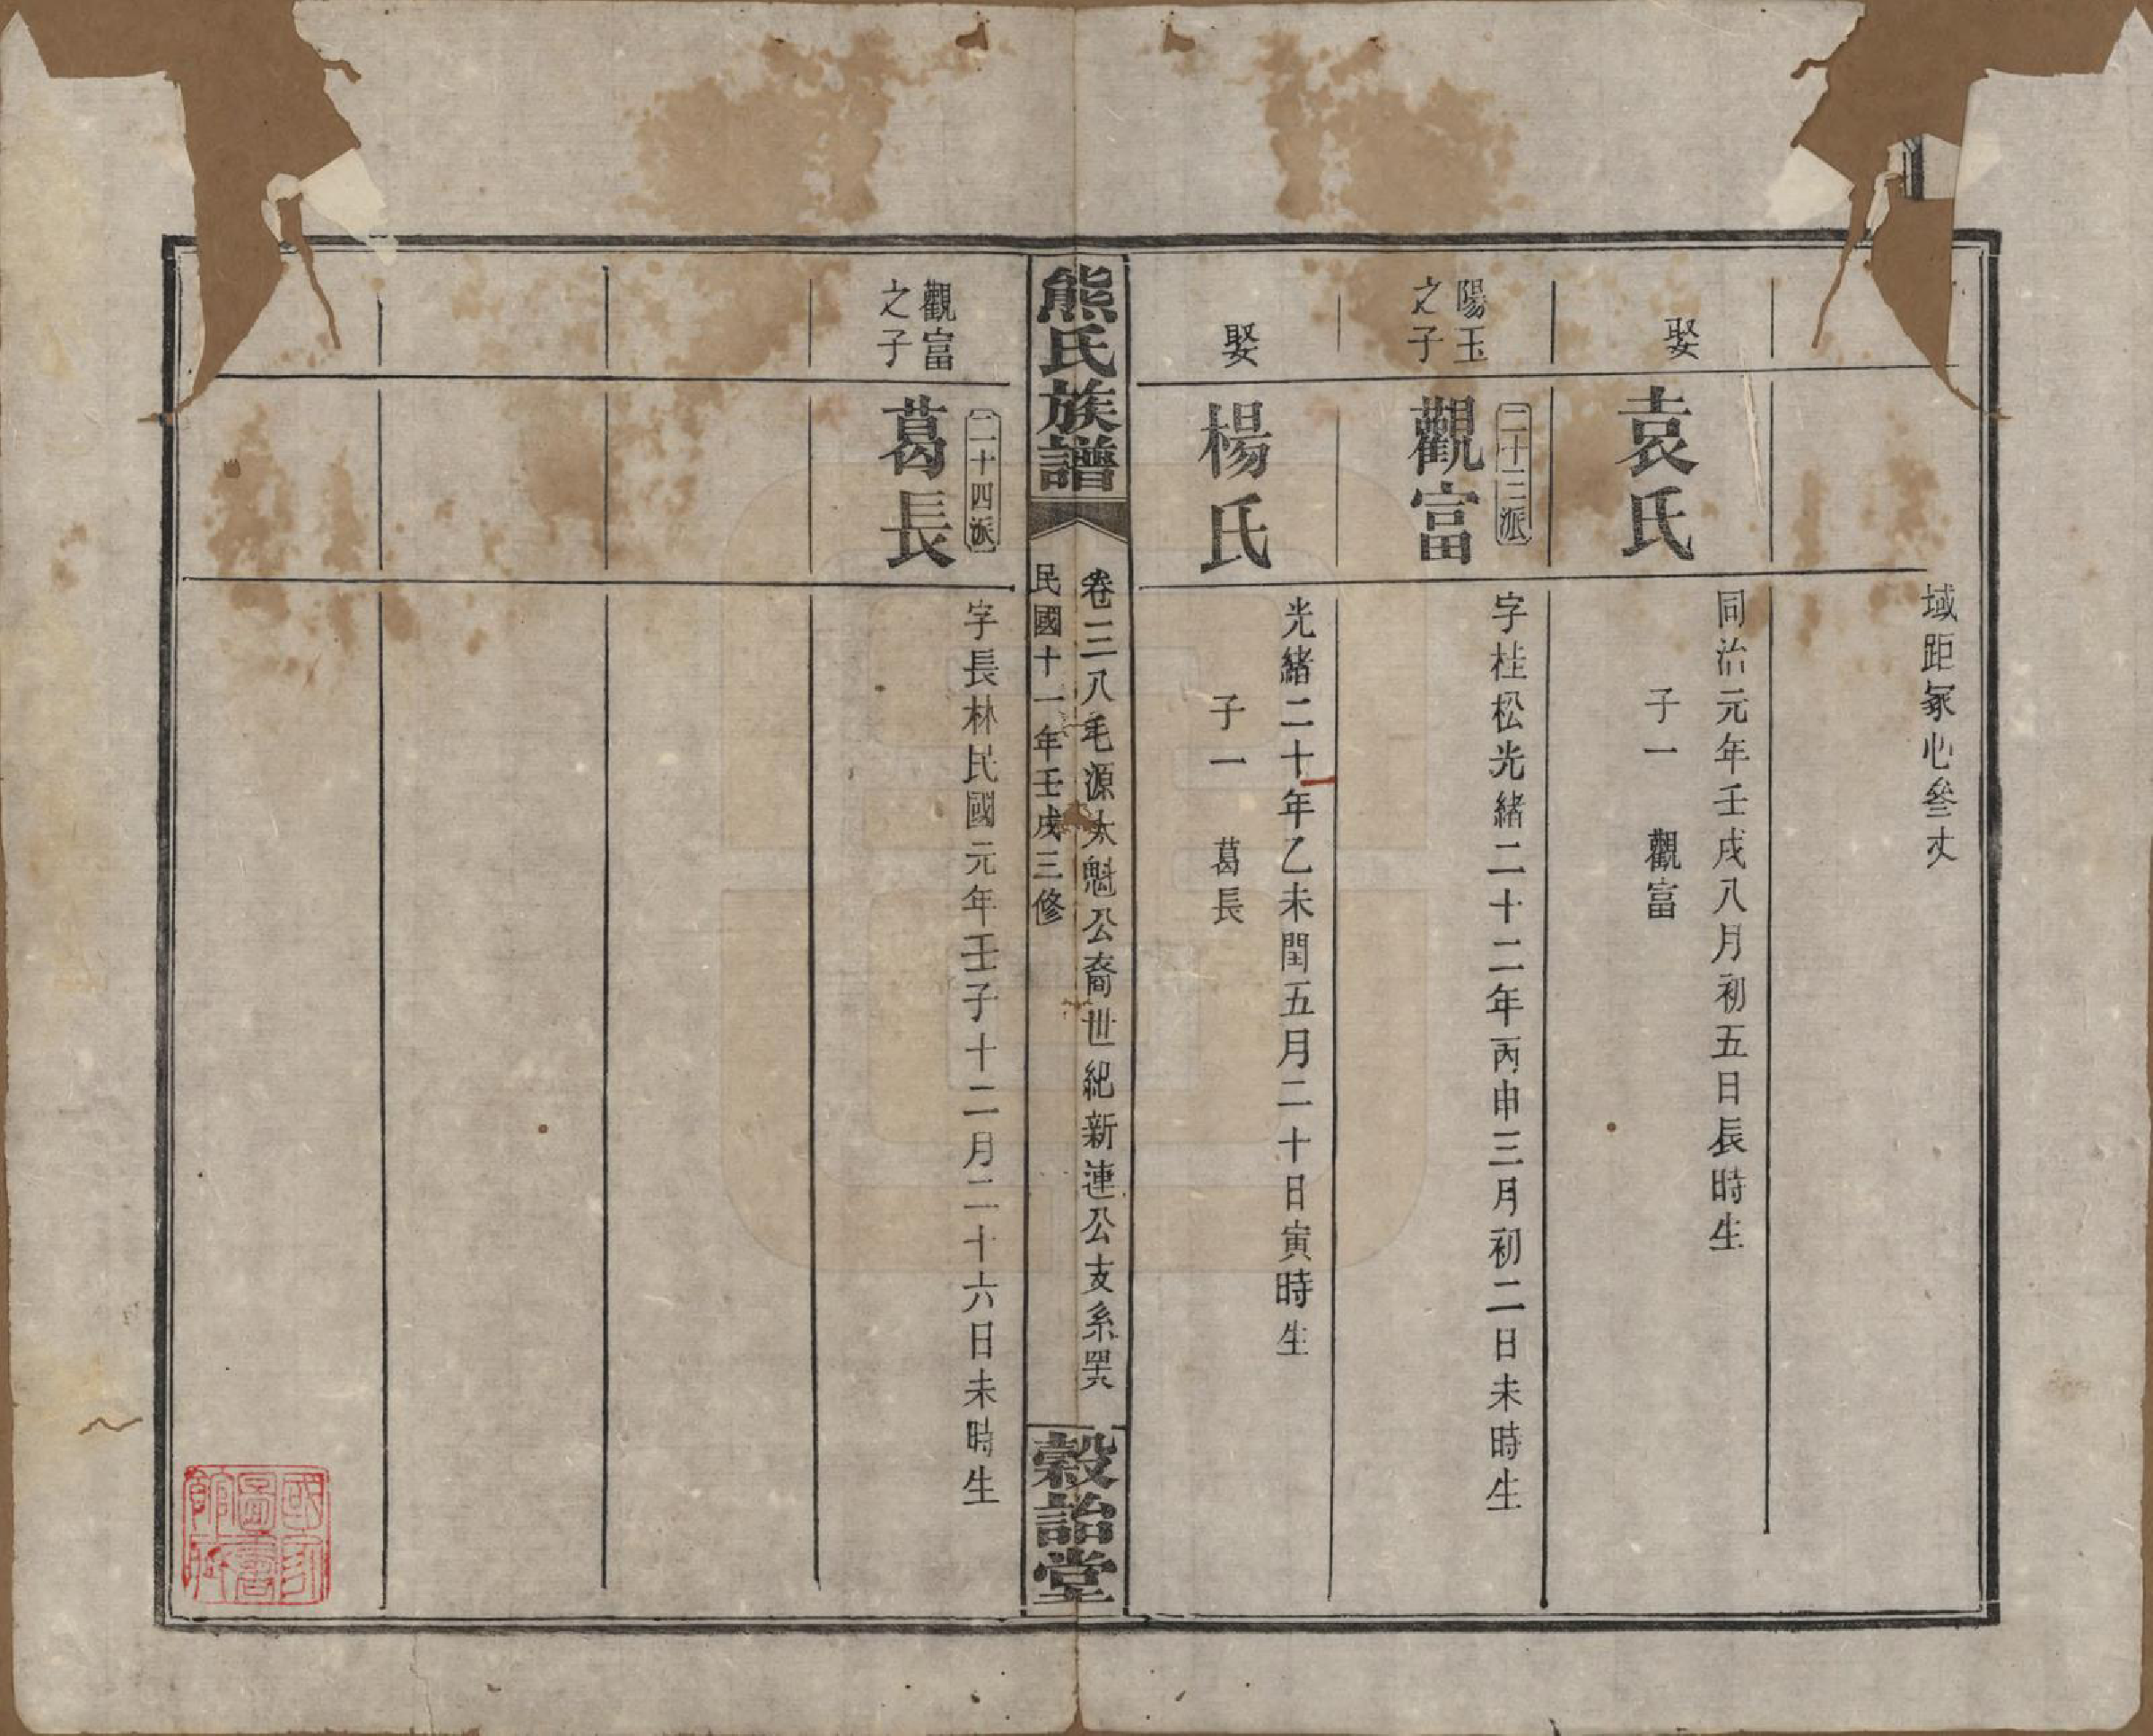 域距冢心叄丈
娶
袁氏
同治元年壬戌八月初五日辰時生
子一 觀富
陽玉
之子
二十三派
觀富
字桂松光緒二十二年丙申三月初二日未時生
娶
楊氏
光緒二十一年乙未閏五月二十日寅時生
子一 葛長
熊氏族譜
卷二八毛源太魁公裔世紀新連公支系
民國十一年壬戌三修
穀詒堂
觀富
之子
二十四派
葛長
字長林民國元年壬子十二月二十六日未時生
國家
圖書
館藏